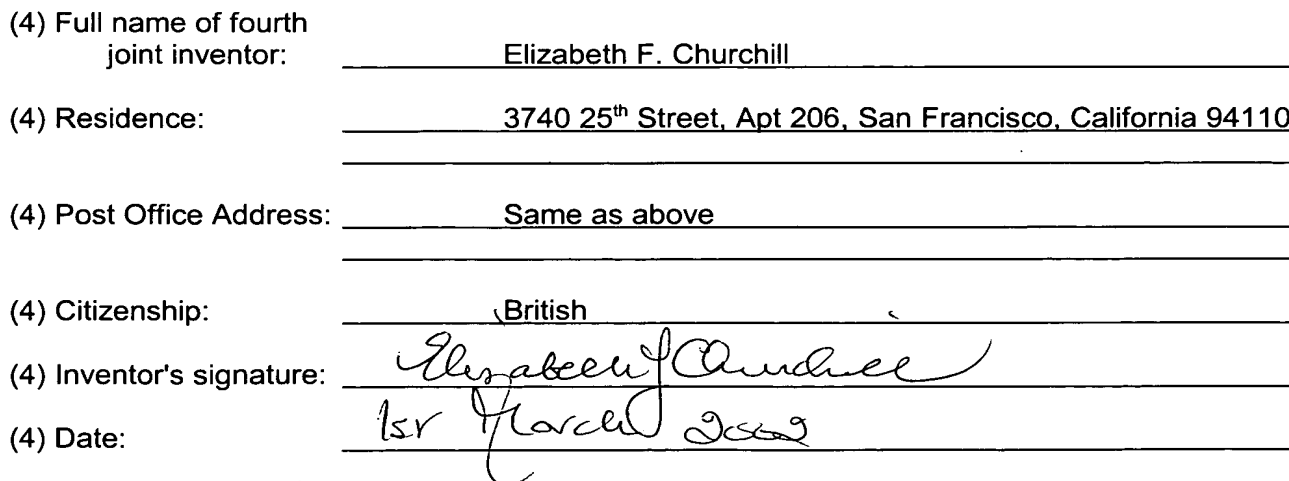 (4) Full name of fourth
joint inventor: Elizabeth F. Churchill
(4) Residence: 3740 25th Street, Apt 206, San Francisco, California 94110
(4) Post Office Address: Same as above
(4) Citizenship: British
(4) Inventor's signature: Elizabeth F Churchill
(4) Date: 1st March 2002